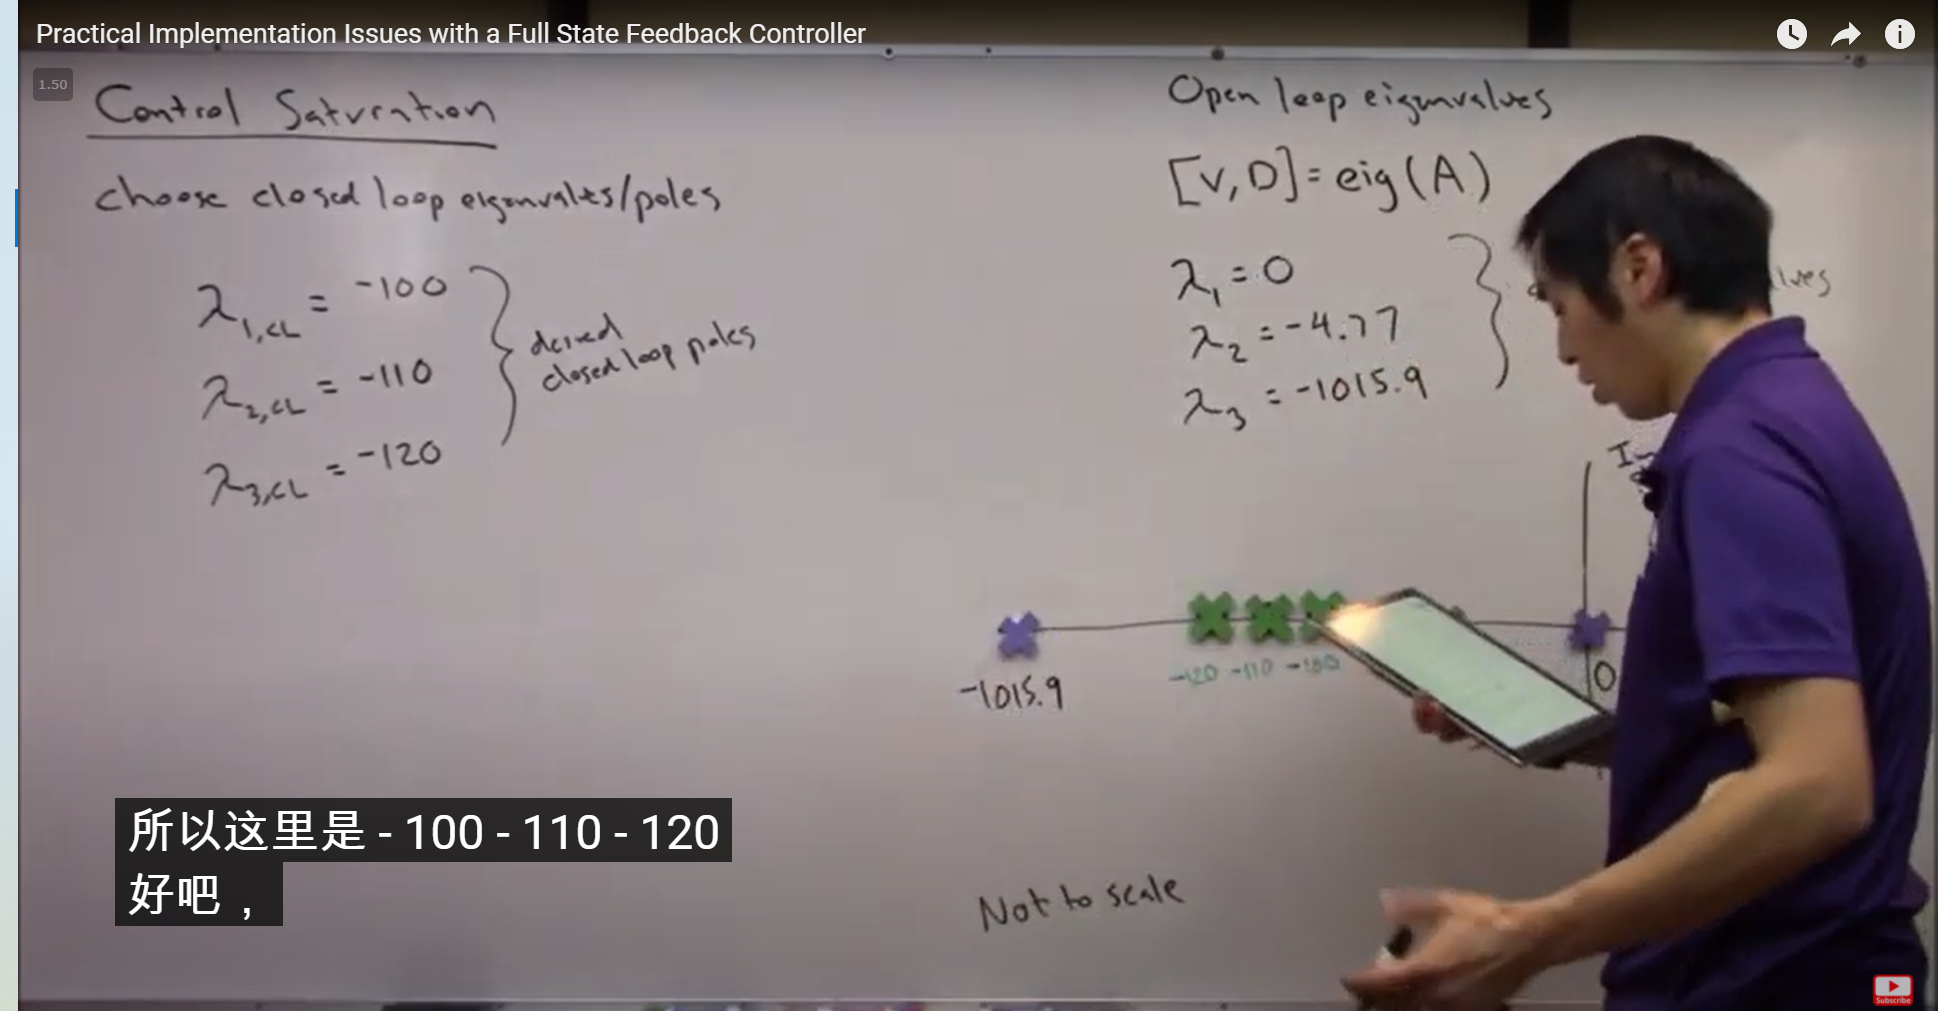 Practical Implementation Issues with a Full State Feedback Controller
1.50
Control Saturation
choose closed loop eigenvalues/poles
λ1,CL = -100
λ2,CL = -110
λ3,CL = -120
desired
closed loop poles
Open loop eigenvalues
[V,D]=eig(A)
λ1 = 0
λ2 = -4.77
λ3 = -1015.9
Im
-1015.9
-120 -110 -100
0
Not to scale
所以这里是 - 100 - 110 - 120
好吧，
Subscribe